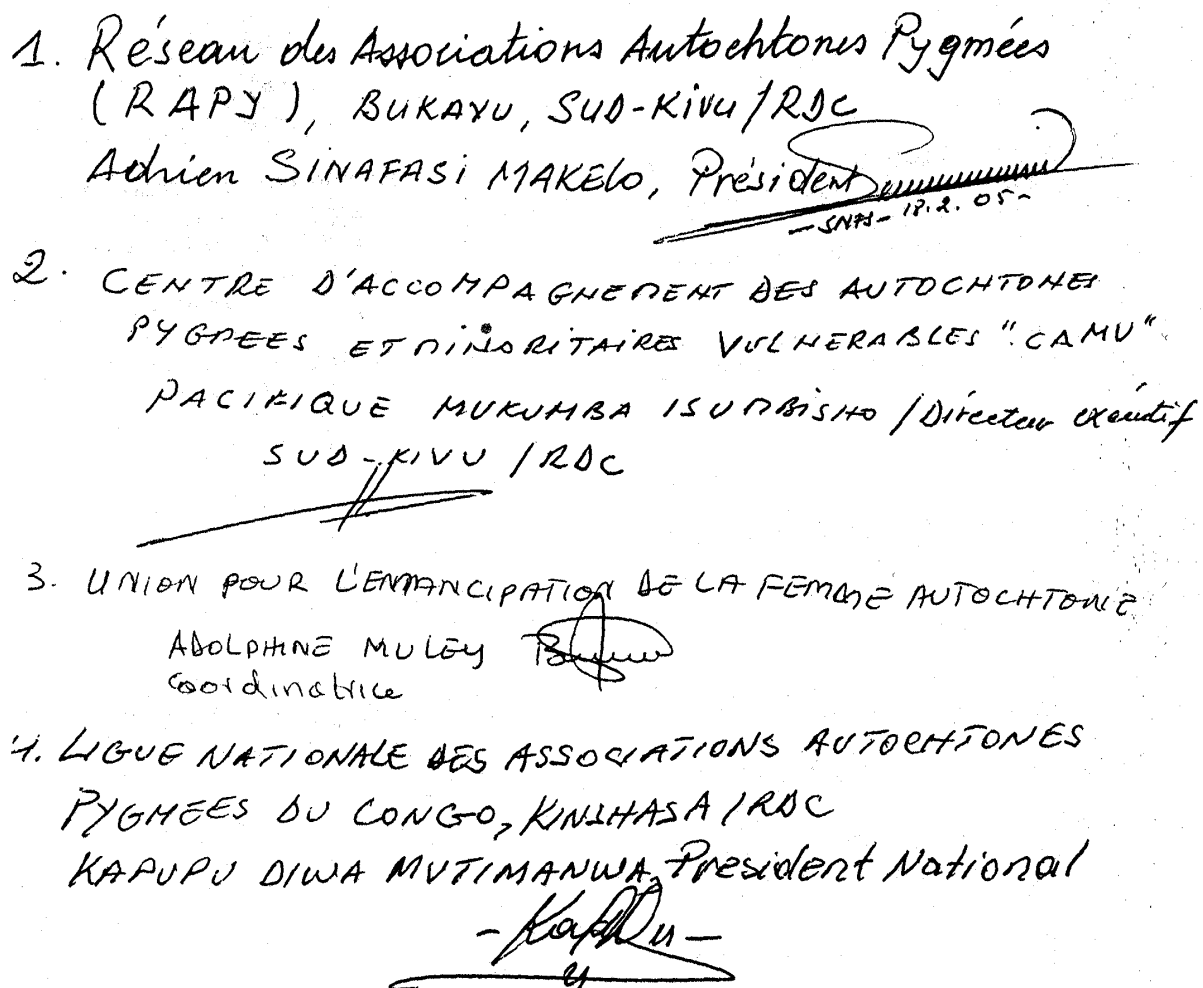 1. Réseau des Associations Autochtones Pygmées
(RAPY), BUKAVU, SUD-KIVU/RDC
Adrien SINAFASI MAKELO, Président
- SNAS - 18.2.05 -
2. CENTRE D'ACCOMPAGNEMENT DES AUTOCHTONES
PYGMEES ET MINORITAIRES VULNERABLES "CAMV"
PACIFIQUE MUKUMBA ISUMBISHO / Directeur exécutif
SUD-KIVU / RDC
3. UNION POUR L'EMANCIPATION DE LA FEMME AUTOCHTONE
ADOLPHINE MULEY
Coordinatrice
4. LIGUE NATIONALE DES ASSOCIATIONS AUTOCHTONES
PYGMEES DU CONGO, KINSHASA / RDC
KAPUPU DIWA MUTIMANWA, President National